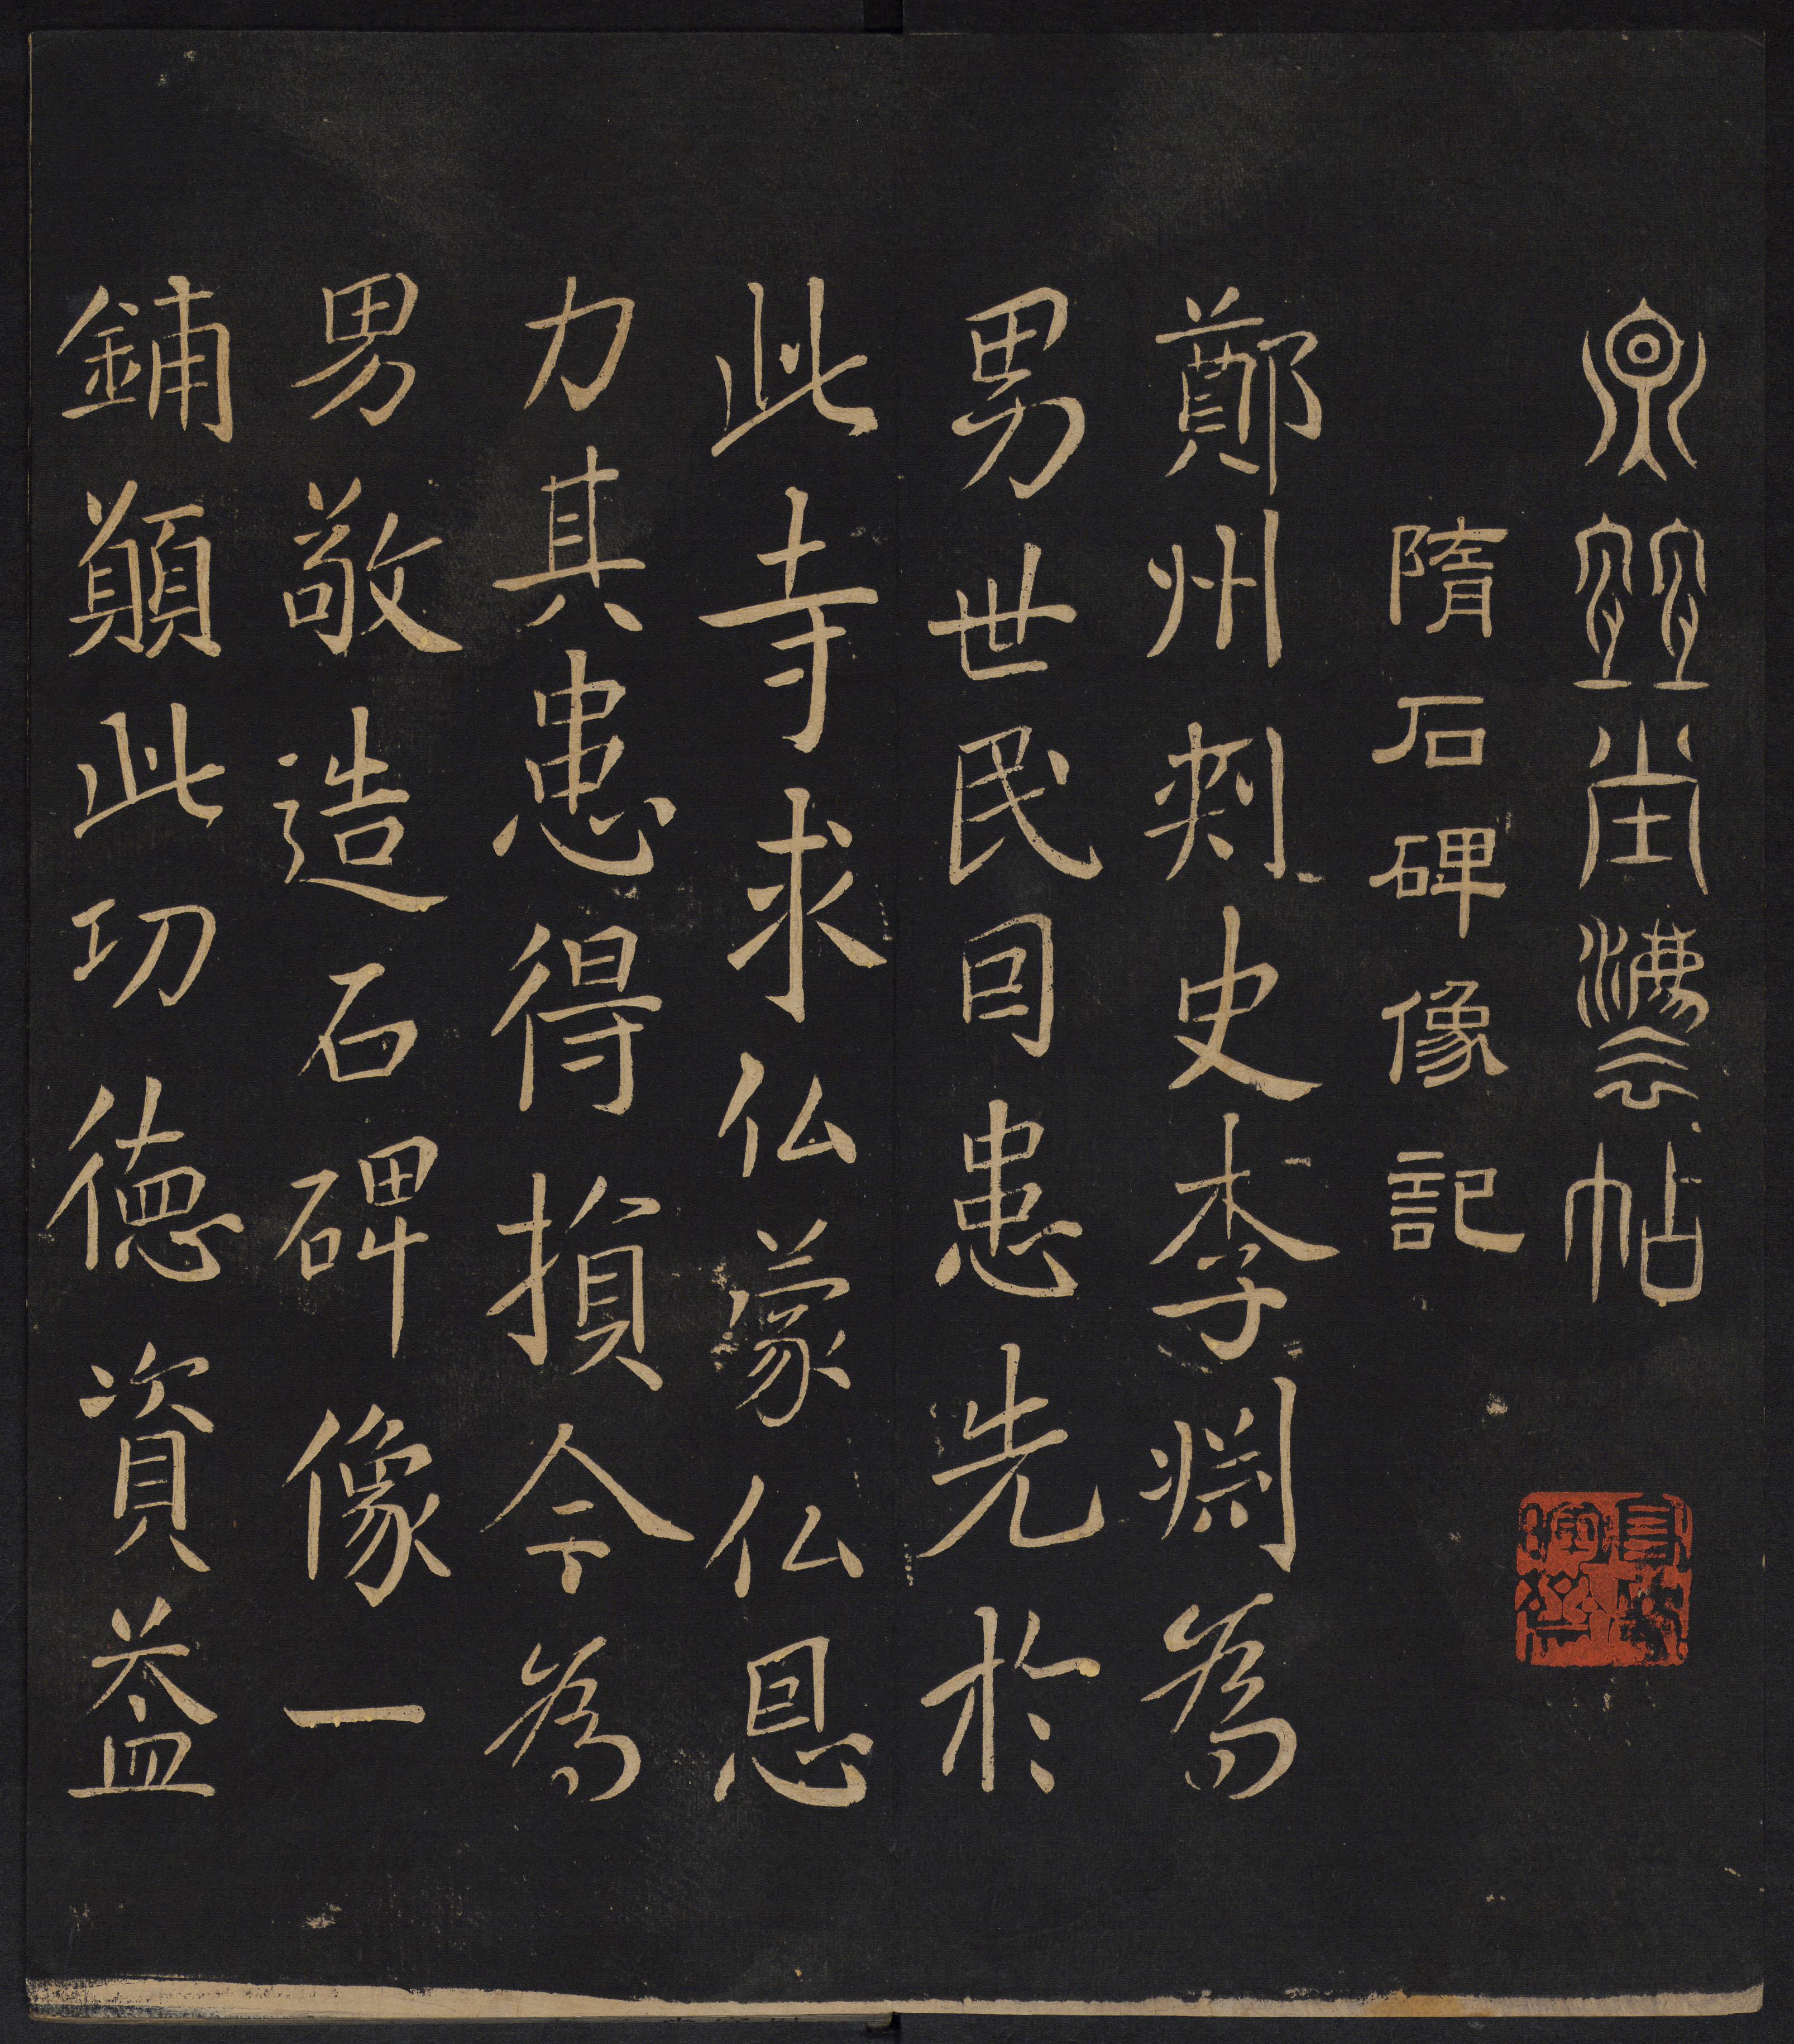 堂帖
隋石碑像記
鄭州刾史李渊為
男世民囙患先於
此寺求仏蒙仏恩
力其患得損今為
男敬造石碑像一
鋪願此功德資益